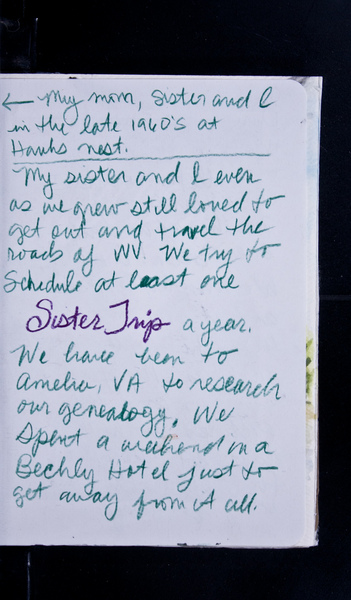 ← My mom, Sister and I
in the late 1960's at
Hawks nest.
My sister and I even
as we grew still loved to
get out and travel the
roads of WV. We try to
Schedule at least one
Sister Trip a year.
We have been to
Amelia, VA to research
our genealogy. We
Spent a weekend in a
Beckly Hotel just to
get away from it all.